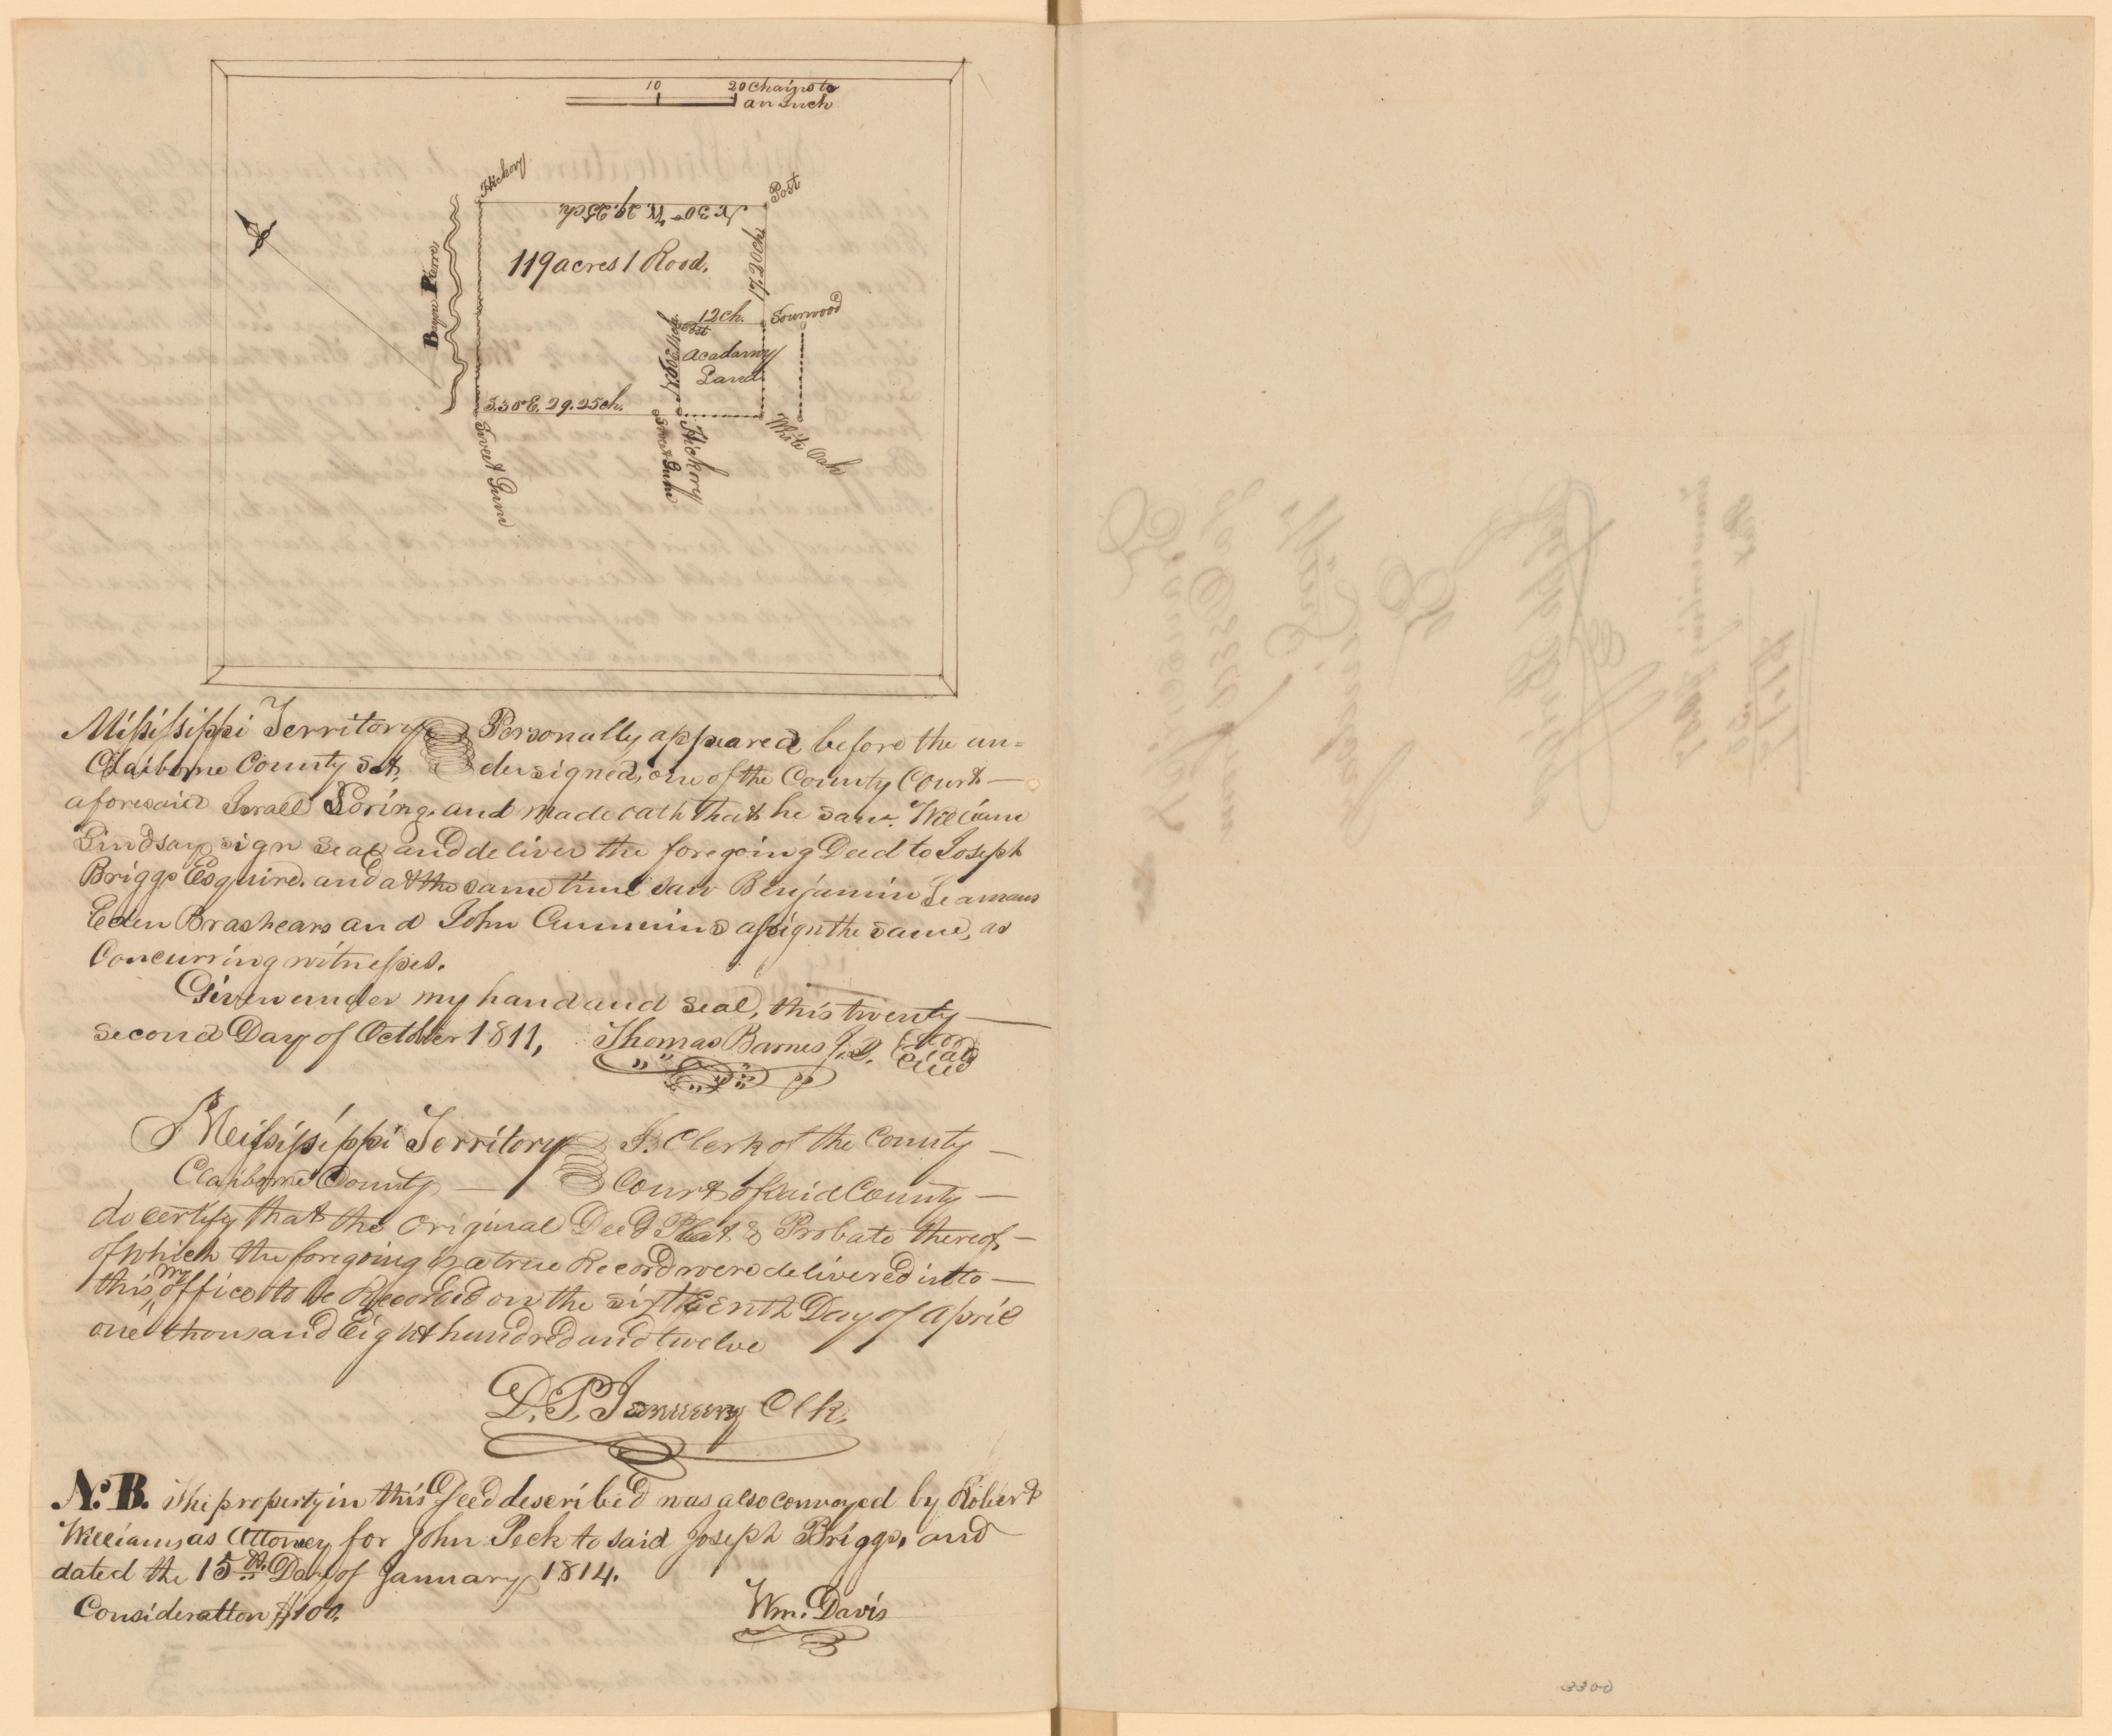 10 20 Chains to
an Inch
Hickory
Post
N. 30° W. 29.25 ch.
Bayu Pierre
119 acres 1 Rood.
17.20 ch
12 ch.
Sourwood
Post
Acadamy
Land
S. 30° E. 29.25 ch.
Sweet Gum
Sweet Gum
Hickory
White Oak
Missisippi Territory Personally appeared before the un=
Claiborne County Sct. dersigned, one of the County Court —
aforesaid Israel Loring, and made oath that he saw William
Lindsay sign seal and deliver the foregoing Deed to Joseph
Briggs Esquire, and at the same time saw Benjamin Seamans
Eden Brashears and John Cummins assign the same, as
Concurring witnesses.
Given under my hand and seal, this twenty —
second Day of October 1811, Thomas Barnes J. P.
Missisippi Territory I. Clerk of the County —
Claiborne County — Court of said County —
do certify that the Original Deed Plat & Probate thereof, —
of which the foregoing is a true Record were delivered into —
my
this office to be Recorded on the sixteenth Day of April
one thousand Eight hundred and twelve
D. P. January Clk.
N. B. The property in this Deed described was also conveyed by Robert
Williams as Attorney for John Peck to said Joseph Briggs, and
dated the 15th. Day of January 1814.
Consideration $100.
Wm. Davis
3300